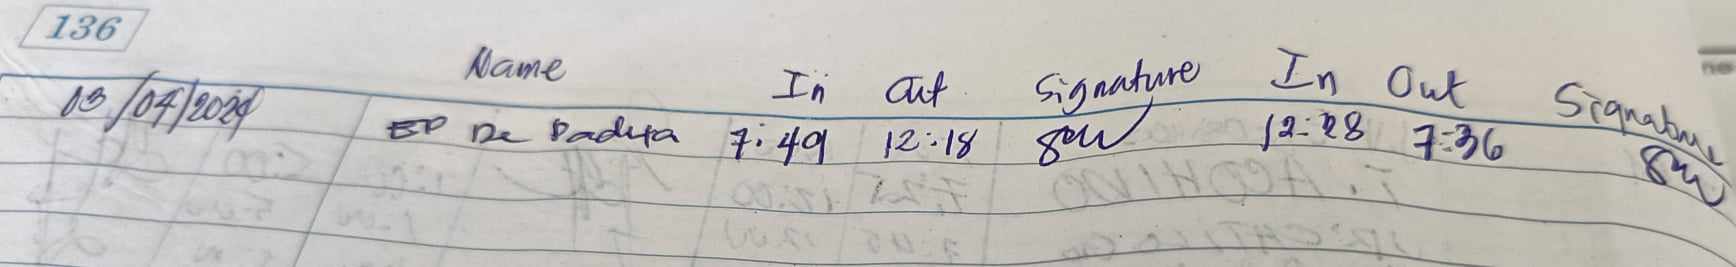 136
Name In Out Signature In Out Signature
03/04/2024 ED De Padua 7:49 12:18 12:28 7:36